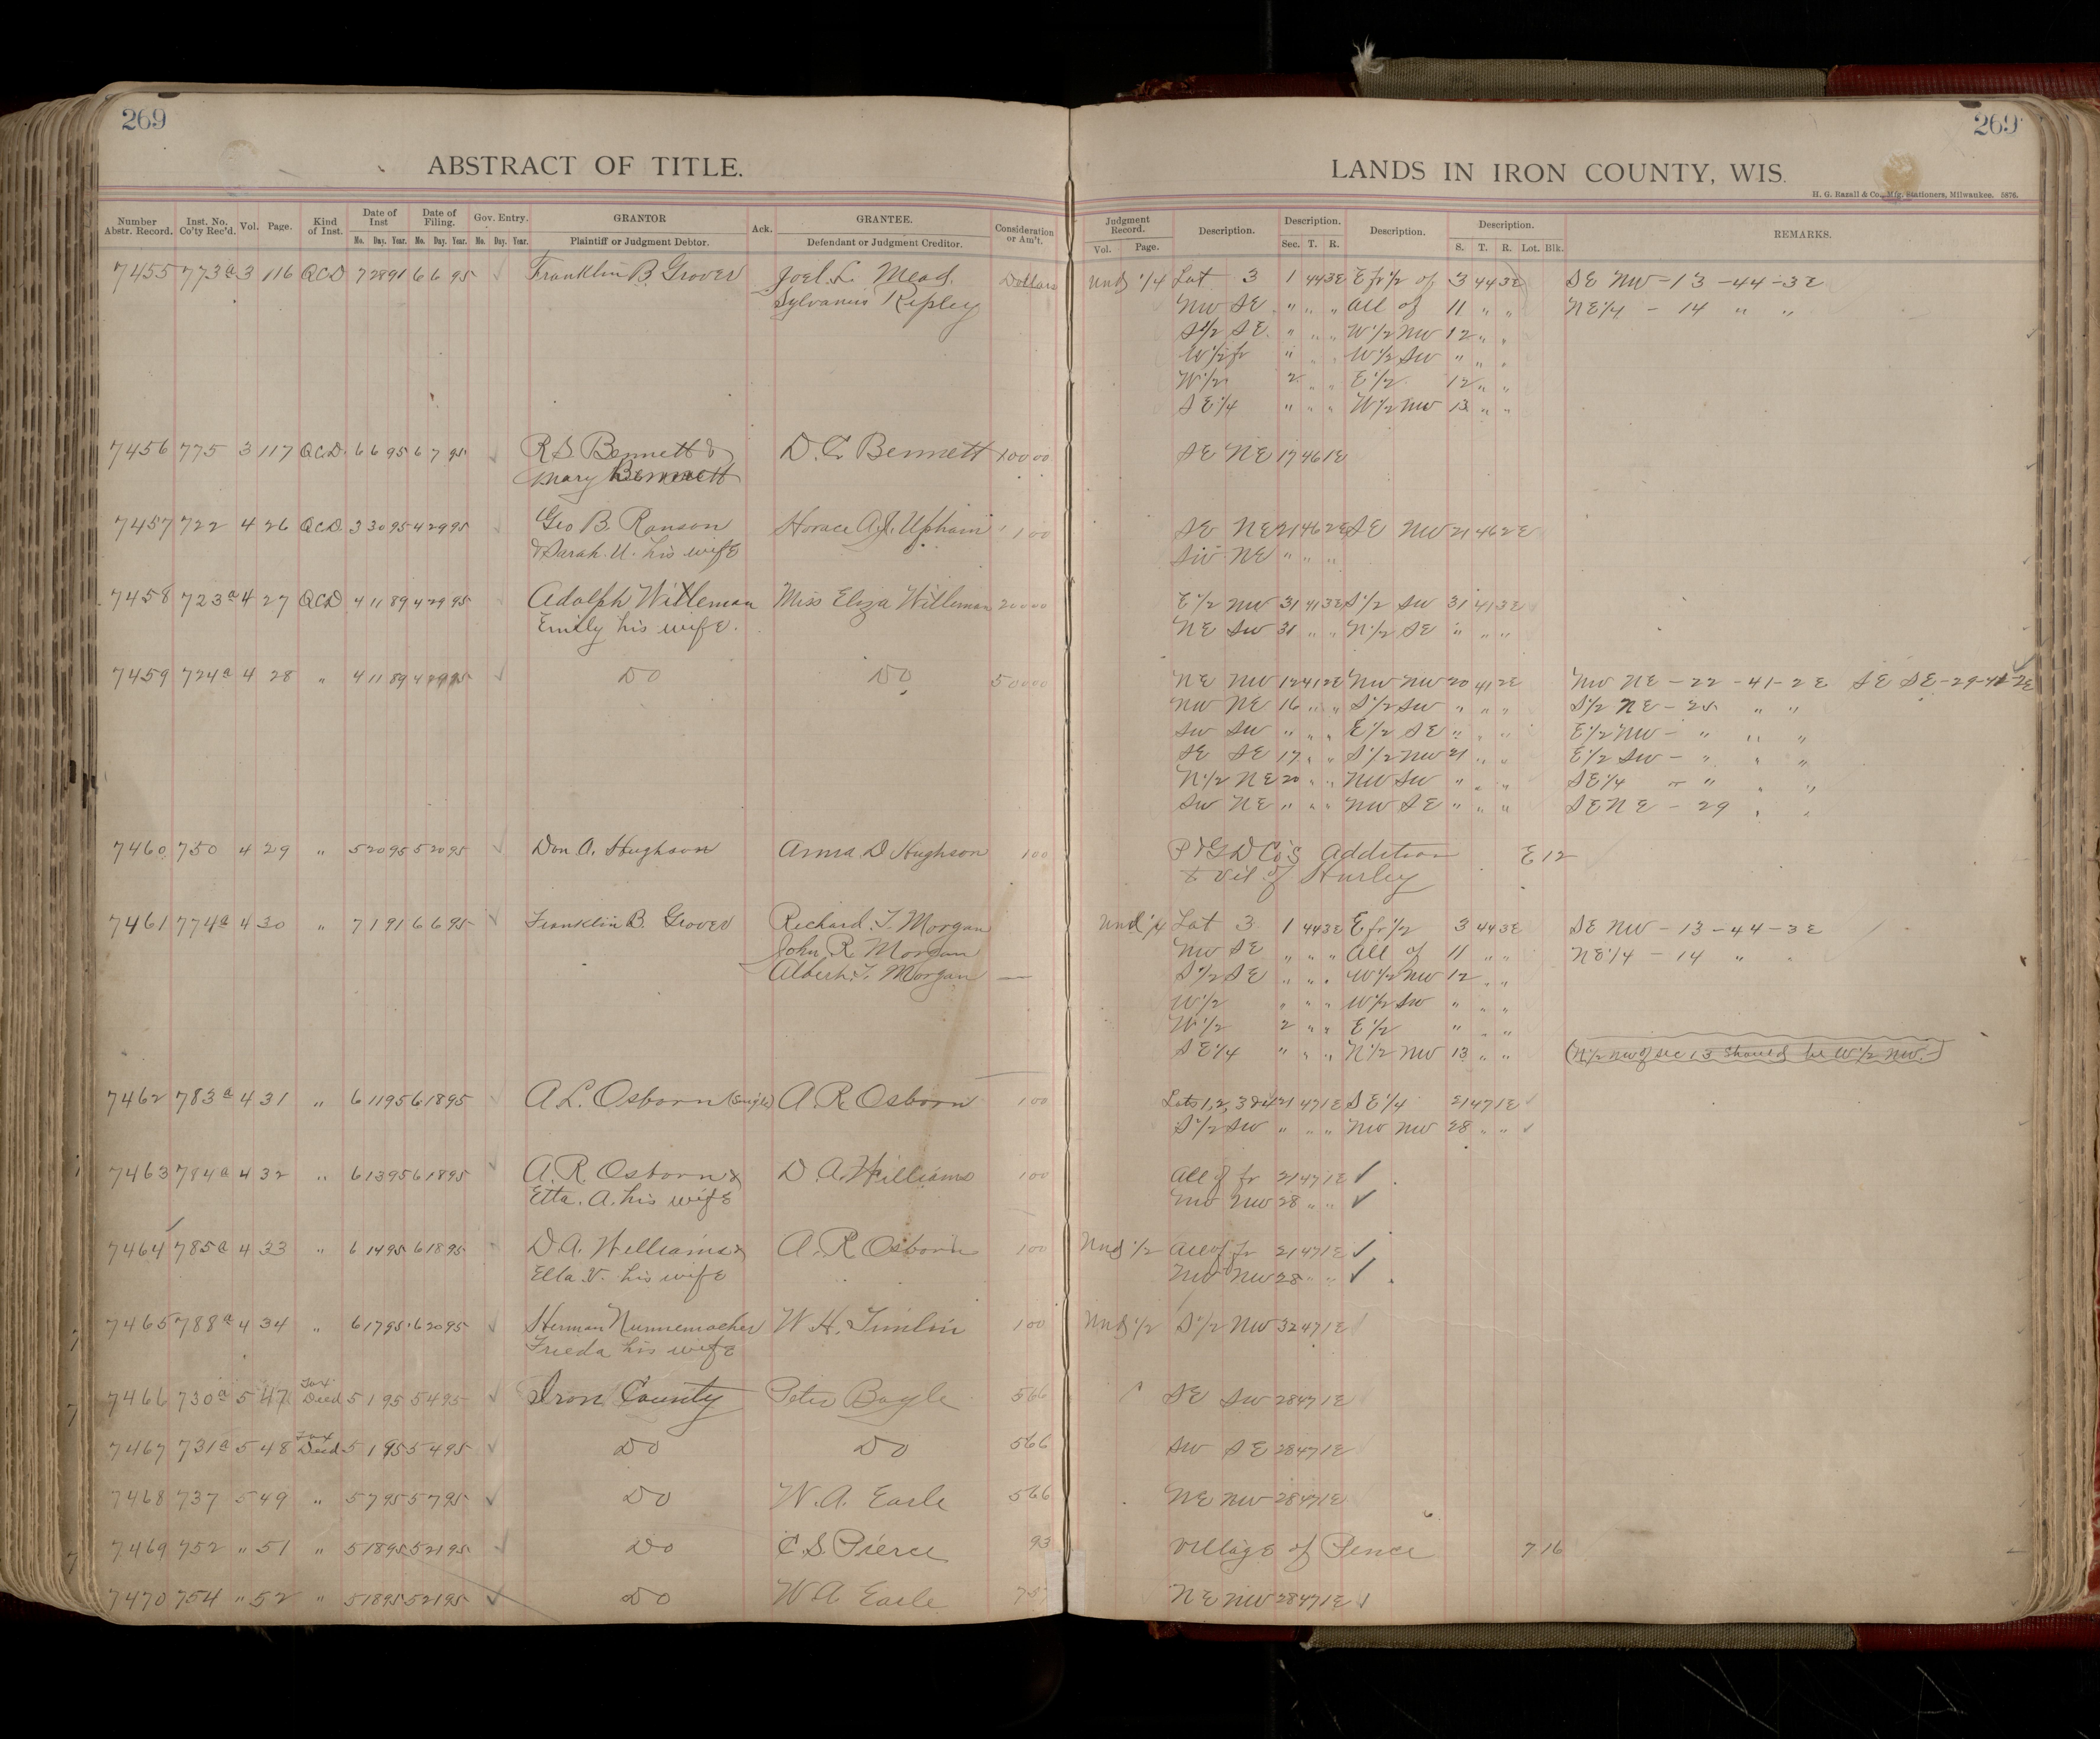 269
269
ABSTRACT OF TITLE.
LANDS IN IRON COUNTY, WIS.
H. G. Razall & Co., Mfg. Stationers, Milwaukee. 5876.
Number Abstr. Record. Inst. No. Co'ty Rec'd. Vol. Page. Kind of Inst. Date of Inst Mo. Day. Year. Date of Filing. Mo. Day. Year. Gov. Entry. Mo. Day. Year. GRANTOR Plaintiff or Judgment Debtor. Ack. GRANTEE. Defendant or Judgment Creditor. Consideration or Am't. Judgment Record. Vol. Page. Description. Description. Sec. T. R. Description. Description. S. T. R. Lot. Blk. REMARKS.
7455 773a 3 116 QCD 7 28 91 6 6 95 Franklin B. Grover Joel L. Mead Dollars Und 1/4 Lot 3 1 44 3E E fr 1/2 of 3 44 3E SE NW - 13 - 44 - 3E
Sylvanus Ripley NW SE " " " All of 11 " " NE 1/4 - 14 " "
S 1/2 SE " " " W 1/2 NW 12 " "
W 1/2 fr " " " W 1/2 SW " " "
W 1/2 2 " " E 1/2 12 " "
SE 1/4 " " " W 1/2 NW 13 " "
7456 775 3 117 QCD 6 6 95 6 7 95 R S. Bennett & D. C. Bennett 100 00 SE NE 17 46 1E
Mary Bennett
7457 722 4 26 QCD 3 30 95 4 29 95 Geo B. Ranson Horace A.J. Upham 1 00 SE NE 21 46 2E SE NW 21 46 2E
& Sarah U. his wife SW NE " " "
7458 723a 4 27 QCD 4 11 89 4 29 95 Adolph Willeman Miss Eliza Willeman 200 00 E 1/2 NW 31 41 3E S 1/2 SW 31 41 3E
Emily his wife. NE SW 31 " " N 1/2 SE " " "
7459 724a 4 28 " 4 11 89 4 29 95 DO DO 500 00 NE NW 12 41 2E NW NW 20 41 2E NW NE - 22 - 41 - 2E SE SE - 29 - 41 - 2E
NW NE 16 " " S 1/2 SW " " " S 1/2 NE - 25 " "
SW SW " " " E 1/2 SE " " " E 1/2 NW - " " "
SE SE 17 " " S 1/2 NW 21 " " E 1/2 SW - " " "
N 1/2 NE 20 " " NW SW " " " SE 1/4 - " " "
SW NE " " " NW SE " " " SE NE - 29 " "
7460 750 4 29 " 5 20 95 5 20 95 Don A. Hughson Anna D Hughson 1 00 Addition E 12
Vil of Hurley
7461 774a 4 30 " 7 1 91 6 6 95 Franklin B. Grover Richard T. Morgan Und 1/4 Lot 3 1 44 3E E fr 1/2 3 44 3E SE NW - 13 - 44 - 3E
John R. Morgan NW SE " " " All of 11 " " NE 1/4 - 14 " "
Albert T. Morgan — S 1/2 SE " " " W 1/2 NW 12 " "
W 1/2 " " " W 1/2 SW " " "
W 1/2 2 " " E 1/2 " " "
SE 1/4 " " " N 1/2 NW 13 " " (N 1/2 NW of sec 13 should be W 1/2 NW.)
7462 783a 4 31 " 6 11 95 6 18 95 A. L. Osborn (Single) A. R. Osborn 1 00 Lots 1, 2, 3 & 4 21 47 1E SE 1/4 21 47 1E
S 1/2 SW " " " NW NW 28 " "
7463 784a 4 32 " 6 13 95 6 18 95 A. R. Osborn & D A. Williams 1 00 All of fr 21 47 1E
Etta. A. his wife NW NW 28 " "
7464 785a 4 33 " 6 14 95 6 18 95 D. A. Williams & A. R. Osborn 1 00 Und 1/2 All of fr 21 47 1E
Ella V. his wife NW NW 28 " "
7465 788a 4 34 " 6 17 95 6 20 95 Herman Nunnemacher W. H. Timlin 1 00 Und 1/2 S 1/2 NW 32 47 1E
Frieda his wife
7466 730a 5 47 Tax Deed 5 1 95 5 4 95 Iron County Peter Boyle 5 66 SE SW 28 47 1E
7467 731a 5 48 Tax Deed 5 1 95 5 4 95 DO DO 5 66 SW SE 28 47 1E
7468 737 5 49 " 5 7 95 5 7 95 DO W. A. Earle 5 66 NE NW 28 47 1E
7469 752 " 51 " 5 18 95 5 21 95 DO C. S. Pierce 93 Village of Pence 7 16
7470 754 " 52 " 5 18 95 5 21 95 DO W A. Earle NE NW 28 47 1E